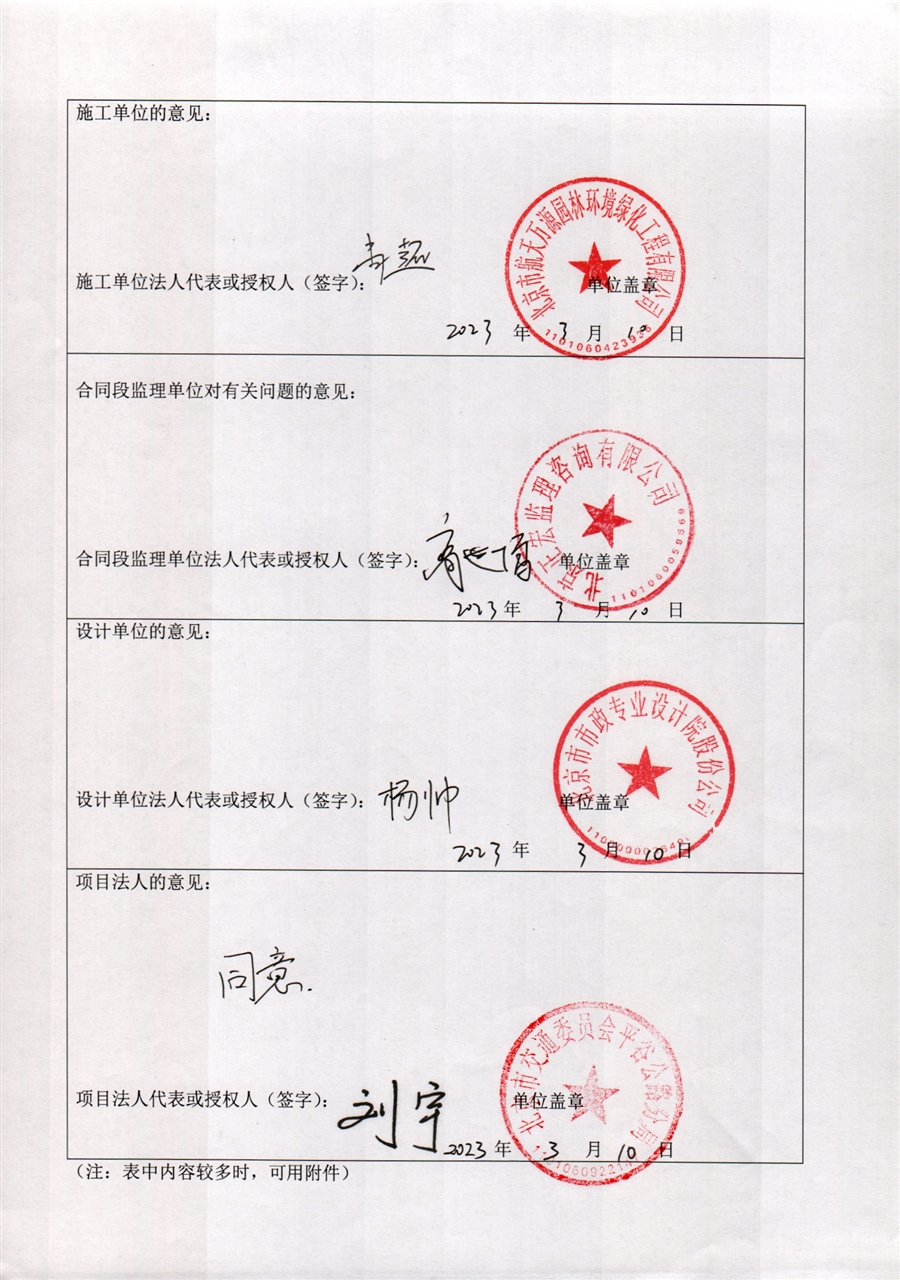 施工单位的意见：
北京市航天万源园林环境绿化工程有限公司
施工单位法人代表或授权人（签字）：
单位盖章
2023 年 3 月 10 日
合同段监理单位对有关问题的意见：
北京正宏监理咨询有限公司
1101060059569
合同段监理单位法人代表或授权人（签字）：
单位盖章
2023 年 3 月 10 日
设计单位的意见：
北京市市政专业设计院股份公司
设计单位法人代表或授权人（签字）：杨帅
单位盖章
2023 年 3 月 10 日
项目法人的意见：
同意.
北京市交通委员会平谷公路分局
项目法人代表或授权人（签字）：刘宇
单位盖章
2023 年 3 月 10 日
（注：表中内容较多时，可用附件）